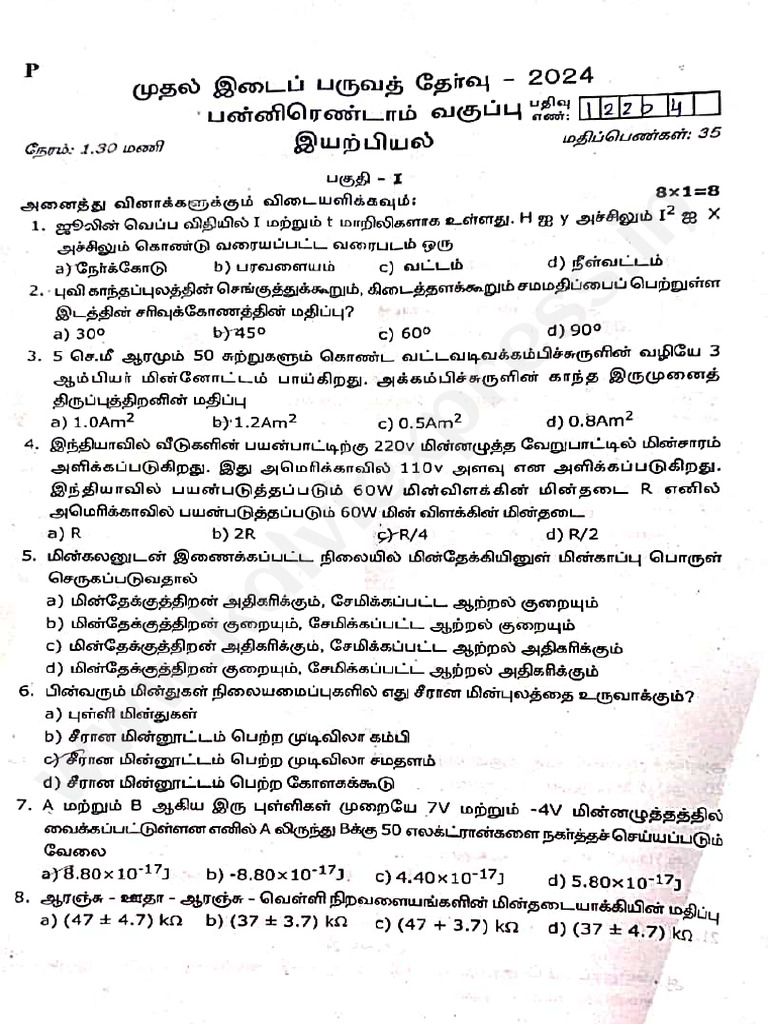 P
முதல் இடைப் பருவத் தேர்வு - 2024
பன்னிரெண்டாம் வகுப்பு பதிவு எண்: 1 2 2 b 4
நேரம்: 1.30 மணி இயற்பியல் மதிப்பெண்கள்: 35
பகுதி - I
அனைத்து வினாக்களுக்கும் விடையளிக்கவும்: 8×1=8
1. ஜூலின் வெப்ப விதியில் I மற்றும் t மாறிலிகளாக உள்ளது. H ஐ y அச்சிலும் I² ஐ X
அச்சிலும் கொண்டு வரையப்பட்ட வரைபடம் ஒரு
a) நேர்க்கோடு b) பரவளையம் c) வட்டம் d) நீள்வட்டம்
2. புவி காந்தப்புலத்தின் செங்குத்துக்கூறும், கிடைத்தளக்கூறும் சமமதிப்பைப் பெற்றுள்ள
இடத்தின் சரிவுக்கோணத்தின் மதிப்பு?
a) 30º b) 45º c) 60º d) 90º
3. 5 செ.மீ ஆரமும் 50 சுற்றுகளும் கொண்ட வட்டவடிவக்கம்பிச்சுருளின் வழியே 3
ஆம்பியர் மின்னோட்டம் பாய்கிறது. அக்கம்பிச்சுருளின் காந்த இருமுனைத்
திருப்புத்திறனின் மதிப்பு
a) 1.0Am² b) 1.2Am² c) 0.5Am² d) 0.8Am²
4. இந்தியாவில் வீடுகளின் பயன்பாட்டிற்கு 220v மின்னழுத்த வேறுபாட்டில் மின்சாரம்
அளிக்கப்படுகிறது. இது அமெரிக்காவில் 110v அளவு என அளிக்கப்படுகிறது.
இந்தியாவில் பயன்படுத்தப்படும் 60W மின்விளக்கின் மின்தடை R எனில்
அமெரிக்காவில் பயன்படுத்தப்படும் 60W மின் விளக்கின் மின்தடை
a) R b) 2R c) R/4 d) R/2
5. மின்கலனுடன் இணைக்கப்பட்ட நிலையில் மின்தேக்கியினுள் மின்காப்பு பொருள்
செருகப்படுவதால்
a) மின்தேக்குத்திறன் அதிகரிக்கும், சேமிக்கப்பட்ட ஆற்றல் குறையும்
b) மின்தேக்குத்திறன் குறையும், சேமிக்கப்பட்ட ஆற்றல் குறையும்
c) மின்தேக்குத்திறன் அதிகரிக்கும், சேமிக்கப்பட்ட ஆற்றல் அதிகரிக்கும்
d) மின்தேக்குத்திறன் குறையும், சேமிக்கப்பட்ட ஆற்றல் அதிகரிக்கும்
6. பின்வரும் மின்துகள் நிலையமைப்புகளில் எது சீரான மின்புலத்தை உருவாக்கும்?
a) புள்ளி மின்துகள்
b) சீரான மின்னூட்டம் பெற்ற முடிவிலா கம்பி
c) சீரான மின்னூட்டம் பெற்ற முடிவிலா சமதளம்
d) சீரான மின்னூட்டம் பெற்ற கோளகக்கூடு
7. A மற்றும் B ஆகிய இரு புள்ளிகள் முறையே 7V மற்றும் -4V மின்னழுத்தத்தில்
வைக்கப்பட்டுள்ளன எனில் A லிருந்து Bக்கு 50 எலக்ட்ரான்களை நகர்த்தச் செய்யப்படும்
வேலை
a) 8.80×10⁻¹⁷J b) -8.80×10⁻¹⁷J c) 4.40×10⁻¹⁷J d) 5.80×10⁻¹⁷J
8. ஆரஞ்சு - ஊதா - ஆரஞ்சு - வெள்ளி நிறவளையங்களின் மின்தடையாக்கியின் மதிப்பு
a) (47 ± 4.7) kΩ b) (37 ± 3.7) kΩ c) (47 + 3.7) kΩ d) (37 ± 4.7) kΩ